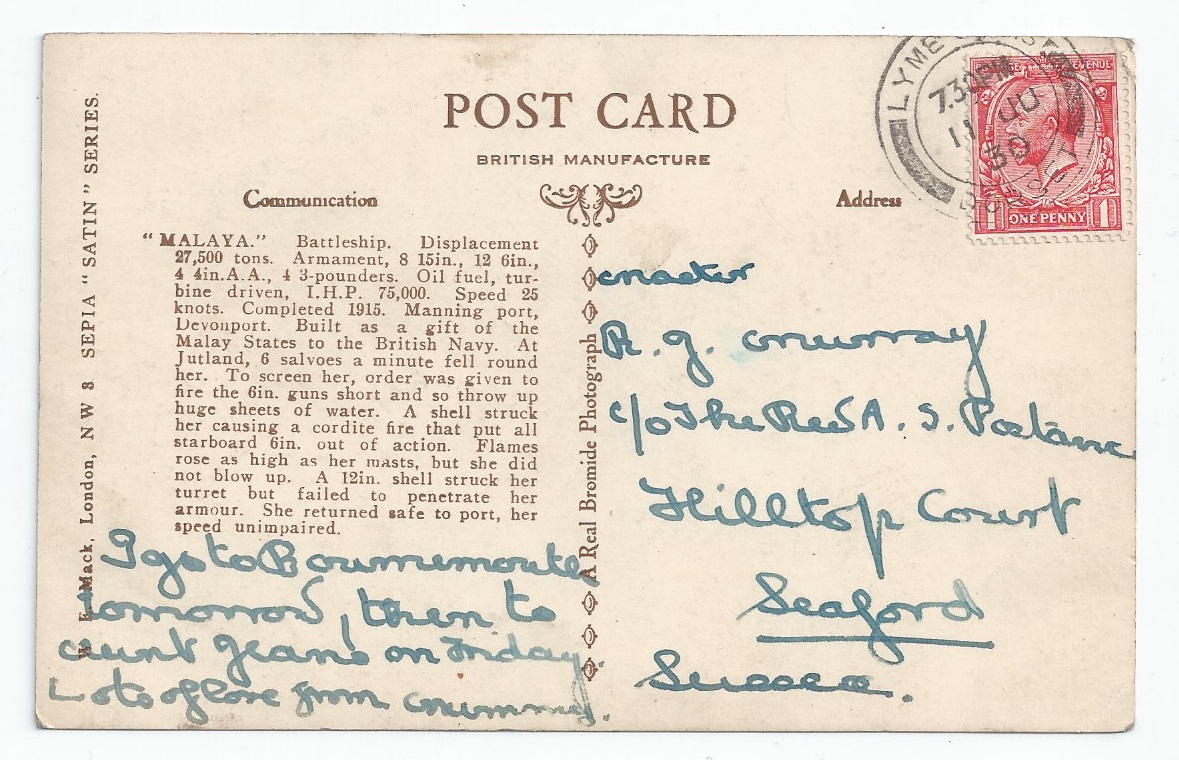 POST CARD
BRITISH MANUFACTURE
Communication
Address
"MALAYA." Battleship. Displacement
27,500 tons. Armament, 8 15in., 12 6in.,
4 4in.A.A., 4 3-pounders. Oil fuel, tur-
bine driven, I.H.P. 75,000. Speed 25
knots. Completed 1915. Manning port,
Devonport. Built as a gift of the
Malay States to the British Navy. At
Jutland, 6 salvoes a minute fell round
her. To screen her, order was given to
fire the 6in. guns short and so throw up
huge sheets of water. A shell struck
her causing a cordite fire that put all
starboard 6in. out of action. Flames
rose as high as her masts, but she did
not blow up. A 12in. shell struck her
turret but failed to penetrate her
armour. She returned safe to port, her
speed unimpaired.
I go to Bournemouth
tomorrow, then to
Aunt Jeans on Friday.
Lots of love from Mummy.
Mack, London, NW 8 SEPIA "SATIN" SERIES.
A Real Bromide Photograph
Master
R. G. Murray
c/o The Rev A. S.
Hilltop Court
Seaford
Sussex.
LYME
7.30PM
11 JU
30
REVENUE
1 ONE PENNY 1